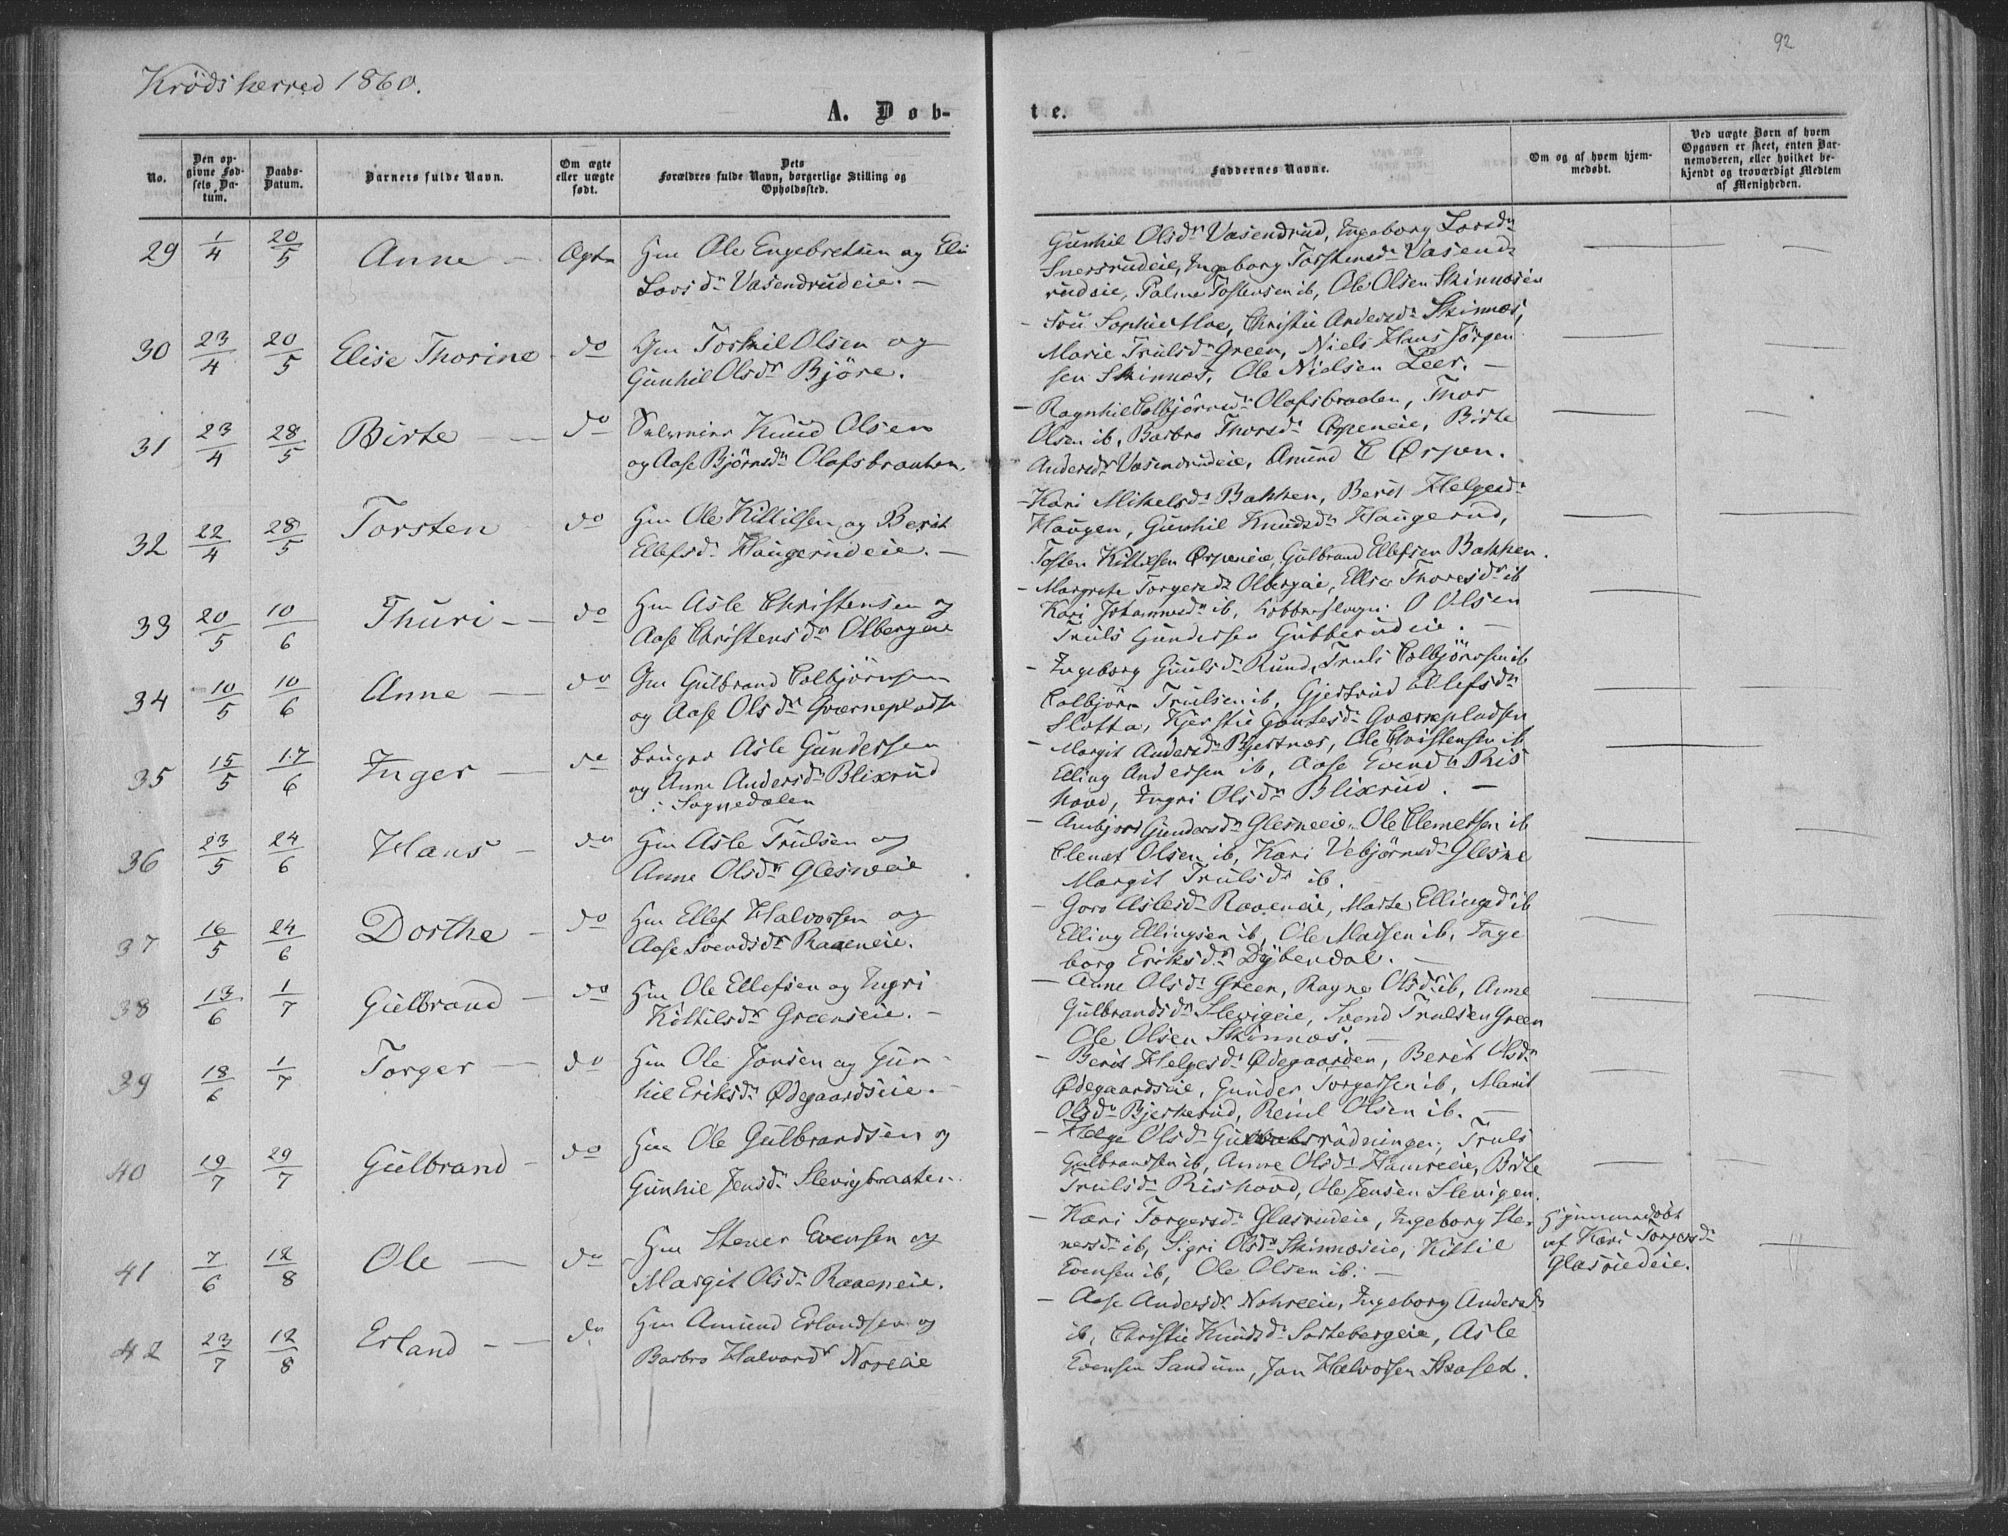 92
Krødsherred 1860.
A. Døb-
te.
No.
Den opgivne Fødsels Datum.
Daabs-Datum.
Barnets fulde Navn.
Om ægte eller uægte født.
Dets Forældres fulde Navn, borgerlige Stilling og Opholdssted.
Faddernes Navne.
Om og af hvem hjemmedøbt.
Ved uægte Børn af hvem Opgaven er skeet, enten Barnemoderen, eller hvilket bekjendt og troværdigt Medlem af Menigheden.
29 1/4 20/5 Anne — Ægte
Hm Ole Engebretsen og Eli
Larsdr Vasendrudeie. —
Gunhil Olsdr Vasendrud, Ingeborg Larsdr
Snersrudeie, Ingeborg Torstensdr Vasend
rudeie, Palme Tostensen ib, Ole Olsen Skinnæseie
30 23/4 20/5 Elise Thorine do
Gm Torkil Olsen og
Gunhil Olsdr Björe.
— Fru Sophie Moe, Christie Andersdr Skinnæs,
Marie Trulsdr Green, Niels Hans Jörgen
sen Skinnæs, Ole Nielsen Leer. —
31 23/4 28/5 Birte — do
Knud Olsen
og Aase Bjørnsdr Olafsbraaten.
— Ragnhil Colbjörnsdr Olafsbraaten, Thor
Olsen ib, Barbro Thorsdr Ørpeneie, Birte
Andersdr Vasendrudeie, Amund E Ørpen.
32 22/4 28/5 Torsten do
Hm Ole Kittilsen og Berit
Ellefsdr Haugerudeie. —
— Kari Mikelsdr Bakken, Berit Helgesdr
Haugen, Gunhil Knudsdr Haugerud,
Tosten Kittilsen Ørpeneie, Gulbrand Ellefsen Bakken.
33 20/5 10/6 Thuri — do
Hm Asle Christensen og
Aase Christensdr Olbergeie
— Margrete Torgersdr Olbergeie, Elise Thoresdr ib
Kari Johannesdr ib, O Olsen
Truls Gundersen Gubberudeie. —
34 10/5 10/6 Anne — do
Gm Gulbrand Colbjörnsen
og Aase Olsdr Qværnepladsen
— Ingeborg Guulsdr Rund, Truls Colbjörnsen ib
Colbjörn Trulsen ib, Gjertrud Ellefsdr
Slotta, Kjerstie Gautesdr Qværnepladsen
35 15/5 17/6 Inger — do
Bruger Asle Gundersen
og Anne Andersdr Blixrud
i Sognedalen
— Margit Andersdr Bjertnæs, Ole Christensen ib
Elling Andersen ib, Aase Evensdr Ris
hovd, Ingri Olsdr Blixrud. —
36 23/5 24/6 Hans — do
Hm Asle Trulsen og
Anne Olsdr Glesneeie
— Ambjor Gundersdr Glesneeie, Ole Clemetsen ib
Clemet Olsen ib, Kari Vebjörnsdr Glesne
Margit Trulsdr ib.
37 16/5 24/6 Dorthe — do
Hm Ellef Halvorsen og
Aase Svendsdr Raaeneie.
— Goro Aslesdr Raaeneie, Marte Ellingsd ib
Elling Ellingsen ib, Ole Madsen ib, Inge
borg Eriksdr Dybendal. —
38 13/6 1/7 Gulbrand — do
Hm Ole Ellefsen og Ingri
Kittilsdr Greeneie. —
— Anne Olsdr Green, Ragne Olsdr ib, Anne
Gulbrandsdr Slevigeie, Svend Trulsen Green
Ole Olsen Skinnæs. —
39 18/6 1/7 Torger — do
Hm Ole Jonsen og Gun-
hil Eriksdr Ødegaardseie. —
— Berit Helgesdr Ødegaarden, Berit Olsdr
Ødegaardseie, Gunder Torgersen ib, Marit
Olsdr Bjerkerud, Reiul Olsen ib. —
40 19/7 29/7 Gulbrand — do
Hm Ole Gulbrandsen og
Gunhil Jensdr Slevigbraaten.
— Helge Olsdr Truls
Gulbrandsen ib, Anne Olsdr Hamreeie, Birte
Trulsdr Rishovd, Ole Jensen Slevigen.
41 7/6 12/8 Ole — do
Hm Stener Evensen og
Margit Olsdr Raaeneie.
— Kari Torgersdr Glasrudeie, Ingeborg Ste
nersdr ib, Sigri Olsdr Skinnæseie, Kittil
Evensen ib, Ole Olsen ib. —
Hjemmedøbt
af Kari Torgersdr
Glasrudeie.
42 23/7 12/8 Erland — do
Hm Amund Erlandsen og
Barbro Halvorsdr Noreeie
— Aase Andersdr Nohreeie, Ingeborg Andersdr
ib, Christie Knudsdr Sortebergeie, Asle
Evensen Sandum, Jon Halvorsen Skaset.